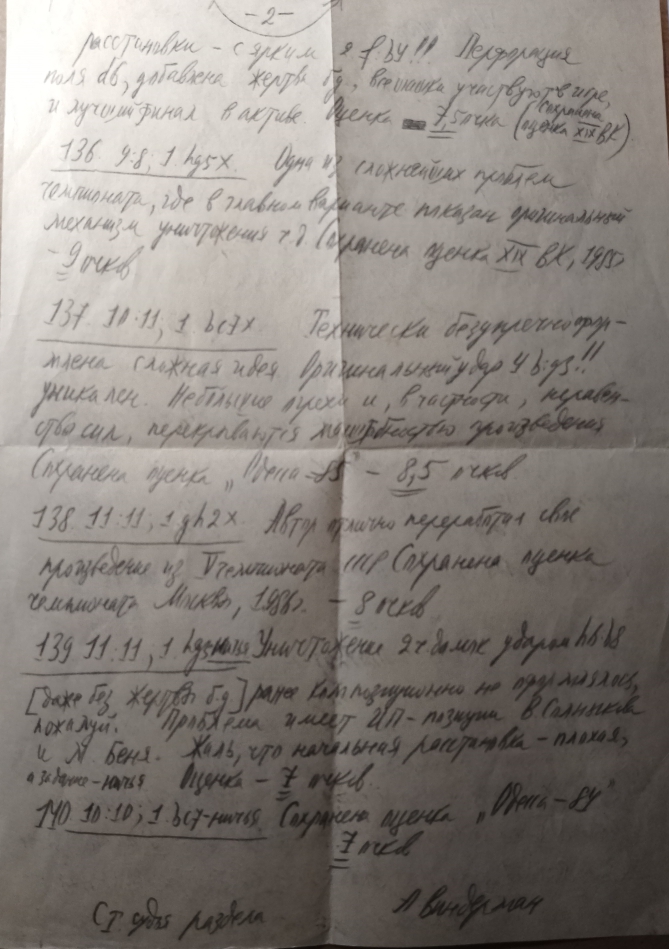 - 2 -
расстановки - с ярким я f:b4!! Перфорация
поля d6, добавлена жертва б.д., все шашки участвуют в игре,
и лучший финал в активе. Оценка - 7,5 очка (сохранена оценка XIX ВК).
136. 9:8, 1. hg5x. Одна из сложнейших проблем
чемпионата, где в главном варианте показан оригинальный
механизм уничтожения ч.д. Сохранена оценка XIX ВК, 1985г
- 9 очков
137. 10:11, 1. bc7x Технически безупречно офор-
млена сложная идея. Оригинальный удар 4. b:g3!!
уникален. Небольшие огрехи и, в частности, неравен-
ство сил, перекрываются масштабностью произведения
Сохранена оценка „Одесса-85" - 8,5 очков
138. 11:11, 1. gh2x Автор отлично переработал свое
произведение из чемпионата СССР. Сохранена оценка
чемпионата Москвы, 1986г. - 8 очков
139. 11:11, 1. hg5 ничья Уничтожение 2х дамок ударом h6:b8
[даже без жертвы б.д.] ранее композиционно не оформлялось,
пожалуй. Проблема имеет ИП - позиции В. Солнцова
и М. Беня. Жаль, что начальная расстановка - плохая,
а задание - ничья Оценка - 7 очков.
140. 10:10; 1. bc7 - ничья Сохранена оценка „Одесса-84"
7 очков
Ст. судья раздела Л Виндерман